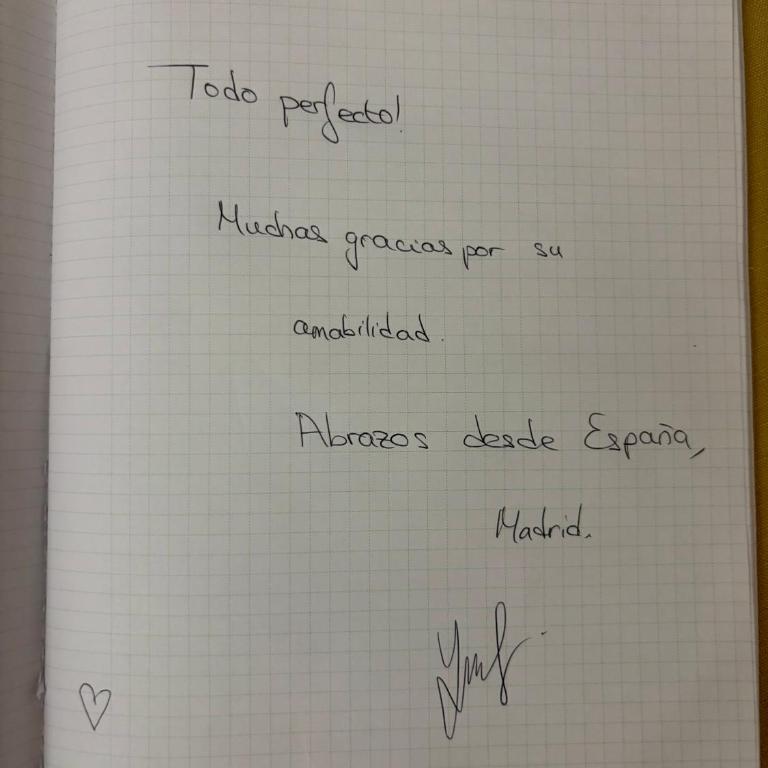 Todo perfecto!
Muchas gracias por su
amabilidad.
Abrazos desde España,
Madrid.